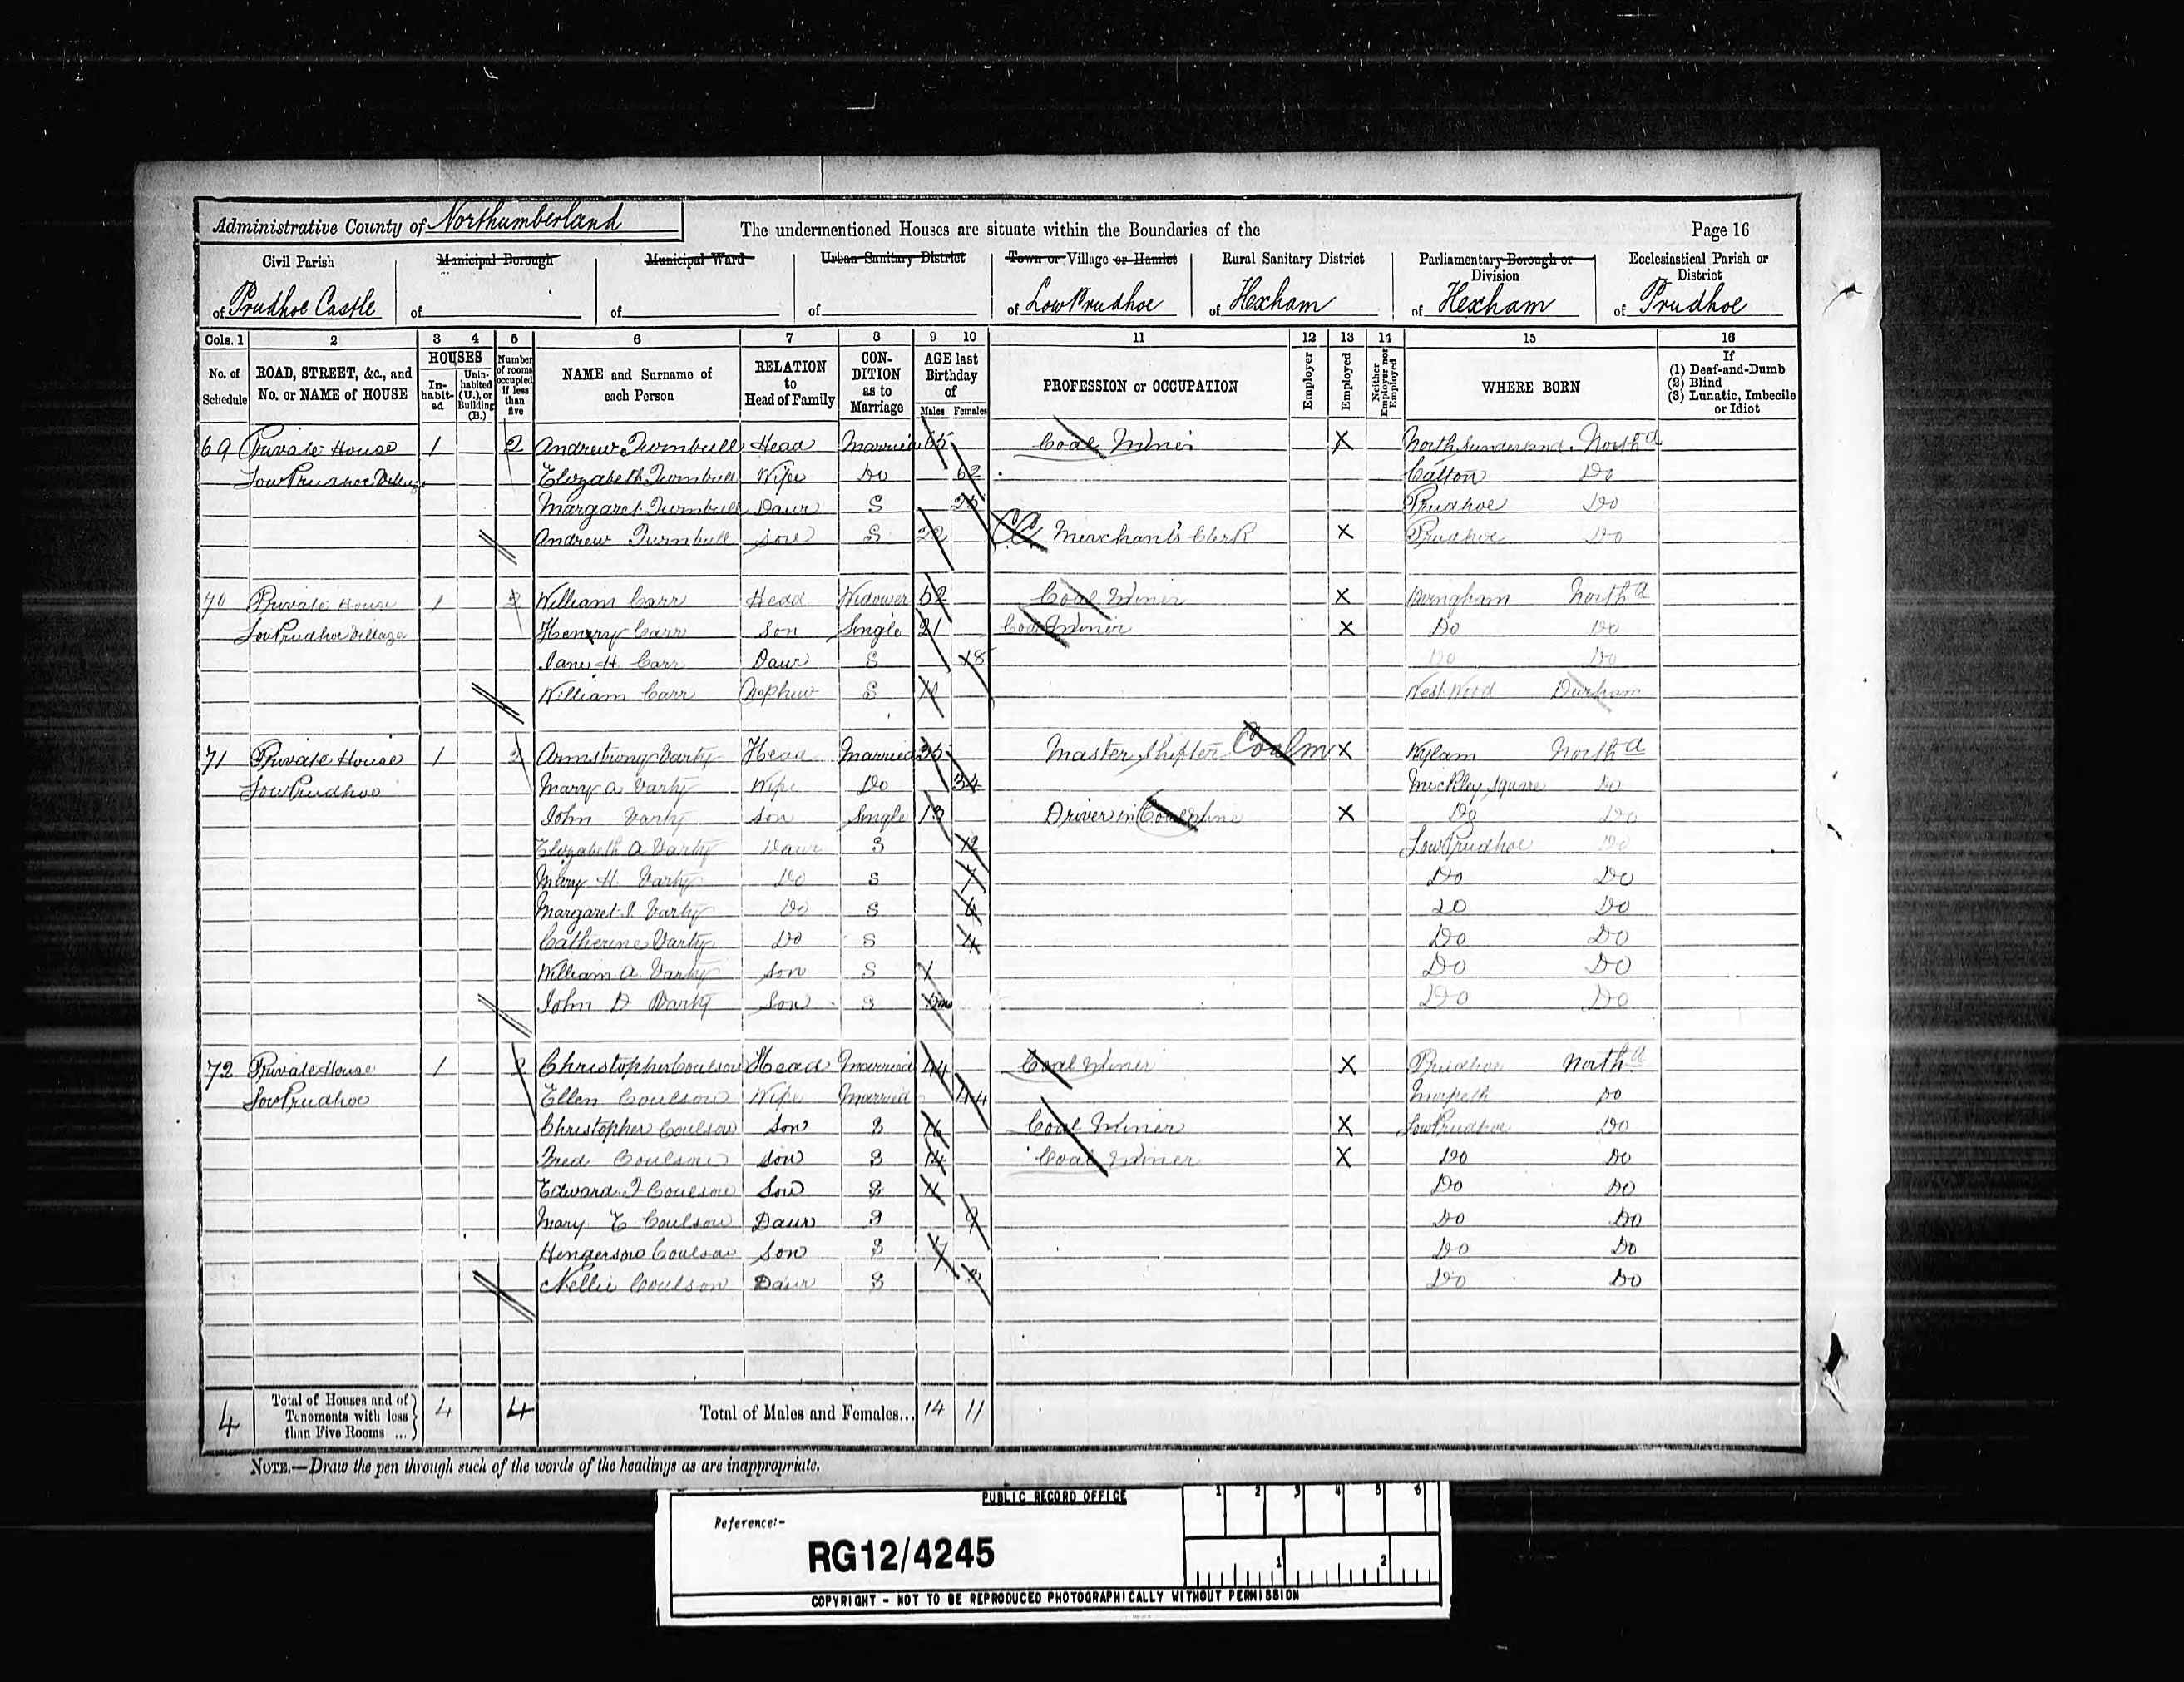 Administrative County of Northumberland The undermentioned Houses are situate within the Boundaries of the Page 16
Civil Parish Municipal Borough Municipal Ward Urban Sanitary District Town or Village or Hamlet Rural Sanitary District Parliamentary Borough or Division Ecclesiastical Parish or District
of Prudhoe Castle of of of of Low Prudhoe of Hexham of Hexham of Prudhoe
Cols. 1 2 3 4 5 6 7 8 9 10 11 12 13 14 15 16
No. of Schedule ROAD, STREET, &c., and No. or NAME of HOUSE HOUSES In-habit-ed Unin-habited (U.), or Building (B.) Number of rooms occupied if less than five NAME and Surname of each Person RELATION to Head of Family CON-DITION as to Marriage AGE last Birthday of Males Females PROFESSION or OCCUPATION Employer Employed Neither Employer nor Employed WHERE BORN If (1) Deaf-and-Dumb (2) Blind (3) Lunatic, Imbecile or Idiot
69 Private House 1 2 Andrew Turnbull Head Married 65 Coal Miner X North Sunderland North d
Low Prudhoe Village Elizabeth Turnbull Wife Do 62 Catton Do
Margaret Turnbull Daur S Prudhoe Do
Andrew Turnbull Son S 22 Merchant's Clerk X Prudhoe Do
70 Private House 1 William Carr Head Widower 52 Coal Miner X Ovingham North d
Low Prudhoe Village Henrry Carr Son Single 21 Coal Miner X Do Do
Jane H. Carr Daur S 18 Do Do
William Carr Nephew S West Wood Durham
71 Private House 1 3 Armstrong Varty Head Married 35 Master Shifter Coal m X Wylam North d
Low Prudhoe Mary A Varty Wife Do 34 Mickley Square Do
John Varty Son Single 13 Driver in Coal Mine X Do Do
Elizabeth A Varty Daur S 12 Low Prudhoe Do
Mary H. Varty Do S 7 Do Do
Margaret J. Varty Do S Do Do
Catherine Varty Do S 4 Do Do
William A. Varty Son S Do Do
John D Varty Son S Do Do
72 Private House 1 Christopher Coulson Head Married 44 Coal Miner X Prudhoe North d
Low Prudhoe Ellen Coulson Wife Married 44 Morpeth Do
Christopher Coulson Son S 16 Coal Miner X Low Prudhoe Do
Fred Coulson Son S 14 Coal Miner X Do Do
Edward J Coulson Son S 11 Do Do
Mary E Coulson Daur S 9 Do Do
Henderson Coulson Son S 7 Do Do
Nellie Coulson Daur S Do Do
4 Total of Houses and of Tenements with less than Five Rooms ... 4 4 Total of Males and Females... 14 11
NOTE.—Draw the pen through such of the words of the headings as are inappropriate.
PUBLIC RECORD OFFICE 1 2 3 4 5 6
Reference:-
RG12/4245 1 2
COPYRIGHT - NOT TO BE REPRODUCED PHOTOGRAPHICALLY WITHOUT PERMISSION